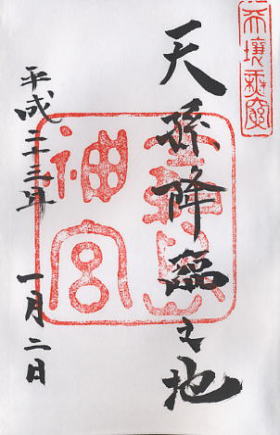 天壤無窮
天孫降臨之地
霧島
神宮
平成二十三年 一月二日